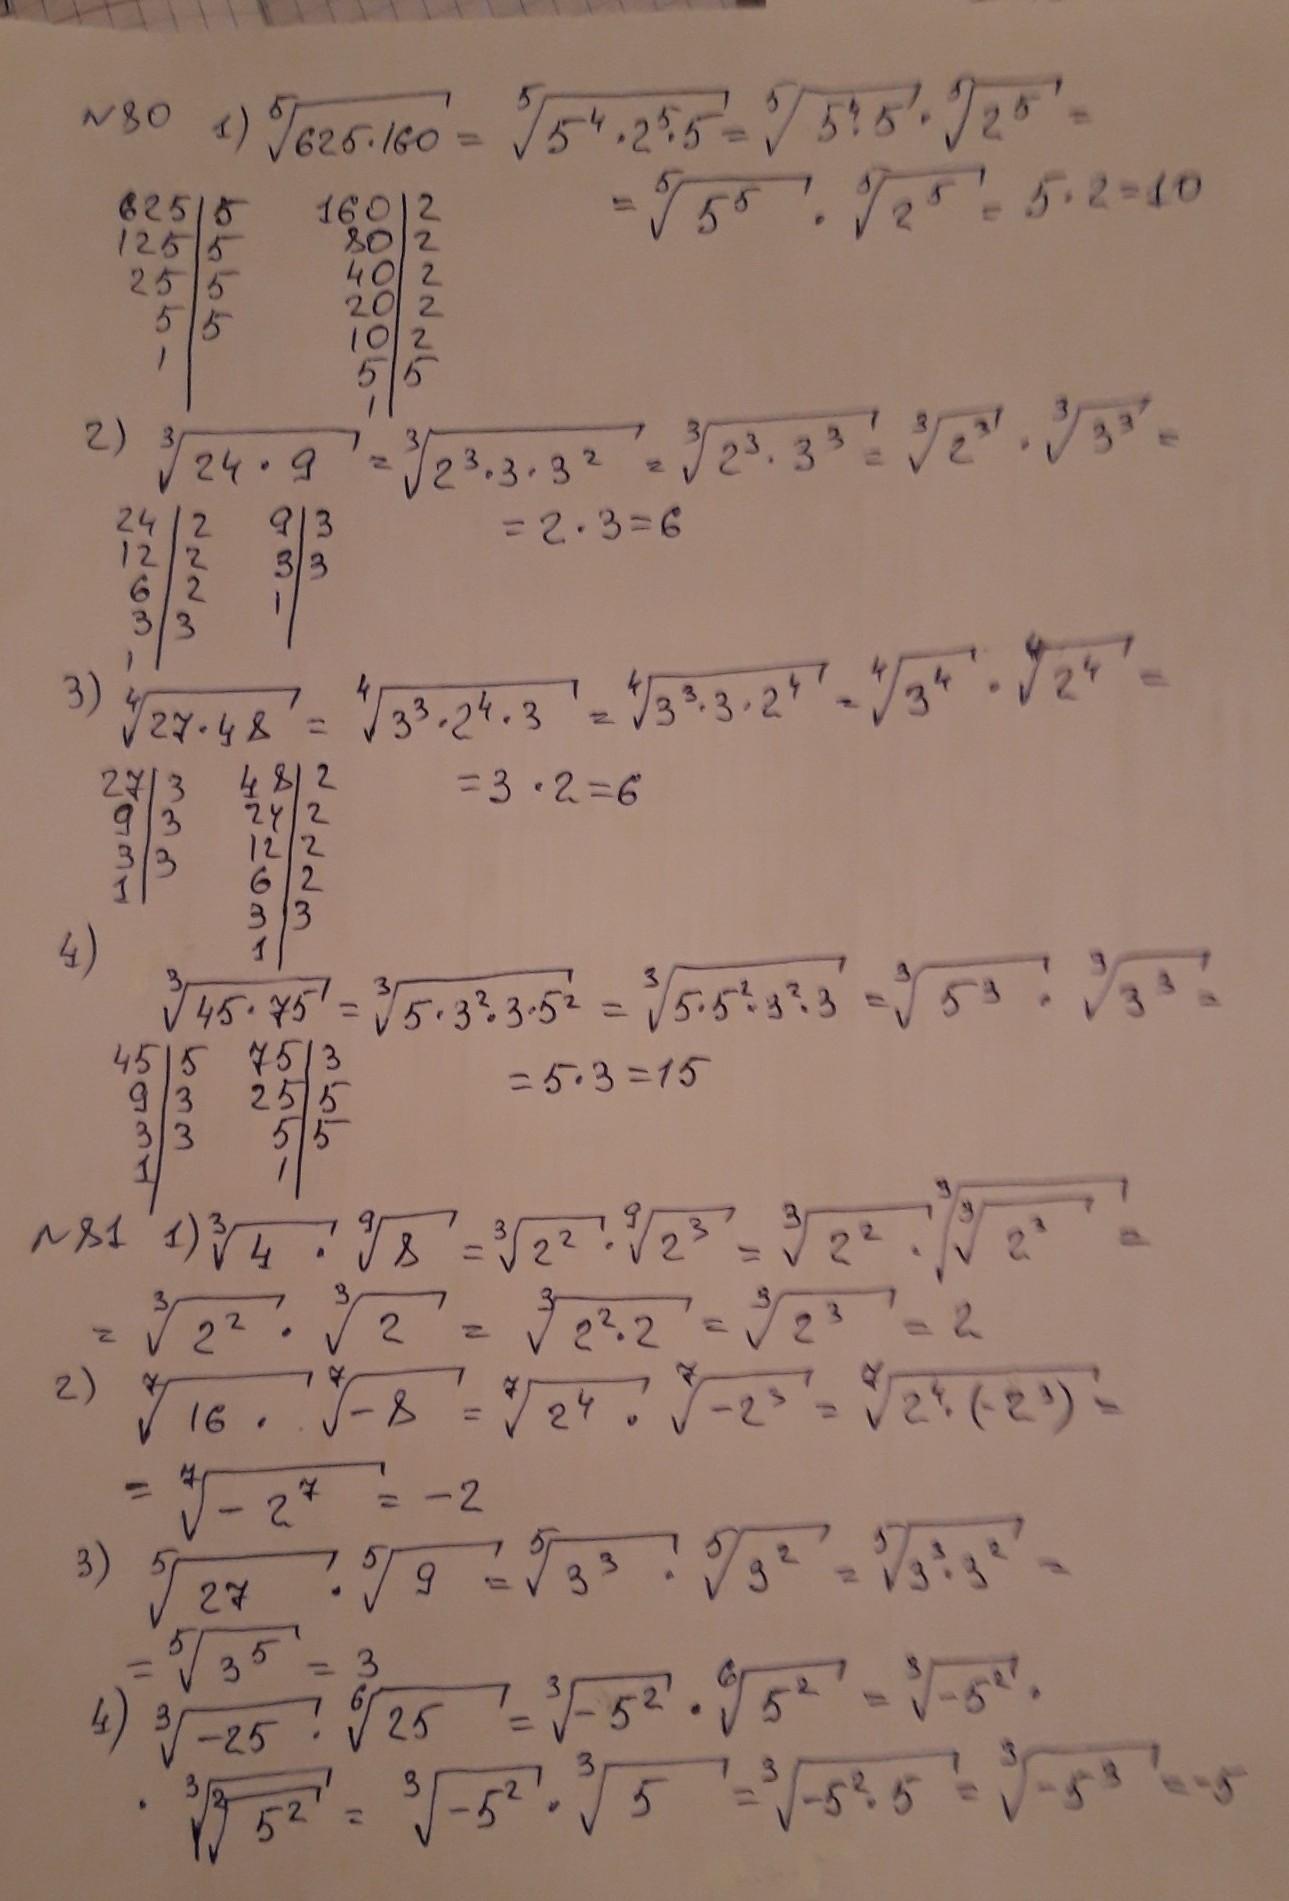 №80 1) ⁵√(625·160) = ⁵√(5⁴·2⁵·5) = ⁵√(5⁴·5) · ⁵√(2⁵) =
= ⁵√(5⁵) · ⁵√(2⁵) = 5·2=10
625|5 160|2
125|5 80|2
25|5 40|2
5|5 20|2
1| 10|2
5|5
1|
2) ³√(24·9) = ³√(2³·3·3²) = ³√(2³·3³) = ³√(2³) · ³√(3³) =
24|2 9|3 = 2·3=6
12|2 3|3
6|2 1|
3|3
1|
3) ⁴√(27·48) = ⁴√(3³·2⁴·3) = ⁴√(3³·3·2⁴) = ⁴√(3⁴) · ⁴√(2⁴) =
27|3 48|2 =3·2=6
9|3 24|2
3|3 12|2
1| 6|2
3|3
1|
4)
³√(45·75) = ³√(5·3²·3·5²) = ³√(5·5²·3²·3) = ³√(5³) · ³√(3³) =
45|5 75|3 =5·3=15
9|3 25|5
3|3 5|5
1| 1|
№81 1) ³√4 · ⁹√8 = ³√(2²) · ⁹√(2³) = ³√(2²) · ³√(³√(2³)) =
= ³√(2²) · ³√2 = ³√(2²·2) = ³√(2³) = 2
2) ⁷√16 · ⁷√(-8) = ⁷√(2⁴) · ⁷√(-2³) = ⁷√(2⁴·(-2³)) =
= ⁷√(-2⁷) = -2
3) ⁵√27 · ⁵√9 = ⁵√(3³) · ⁵√(3²) = ⁵√(3³·3²) =
= ⁵√(3⁵) = 3
4) ³√(-25) · ⁶√25 = ³√(-5²) · ⁶√(5²) = ³√(-5²) ·
· ³√(²√(5²)) = ³√(-5²) · ³√5 = ³√(-5²·5) = ³√(-5³) = -5